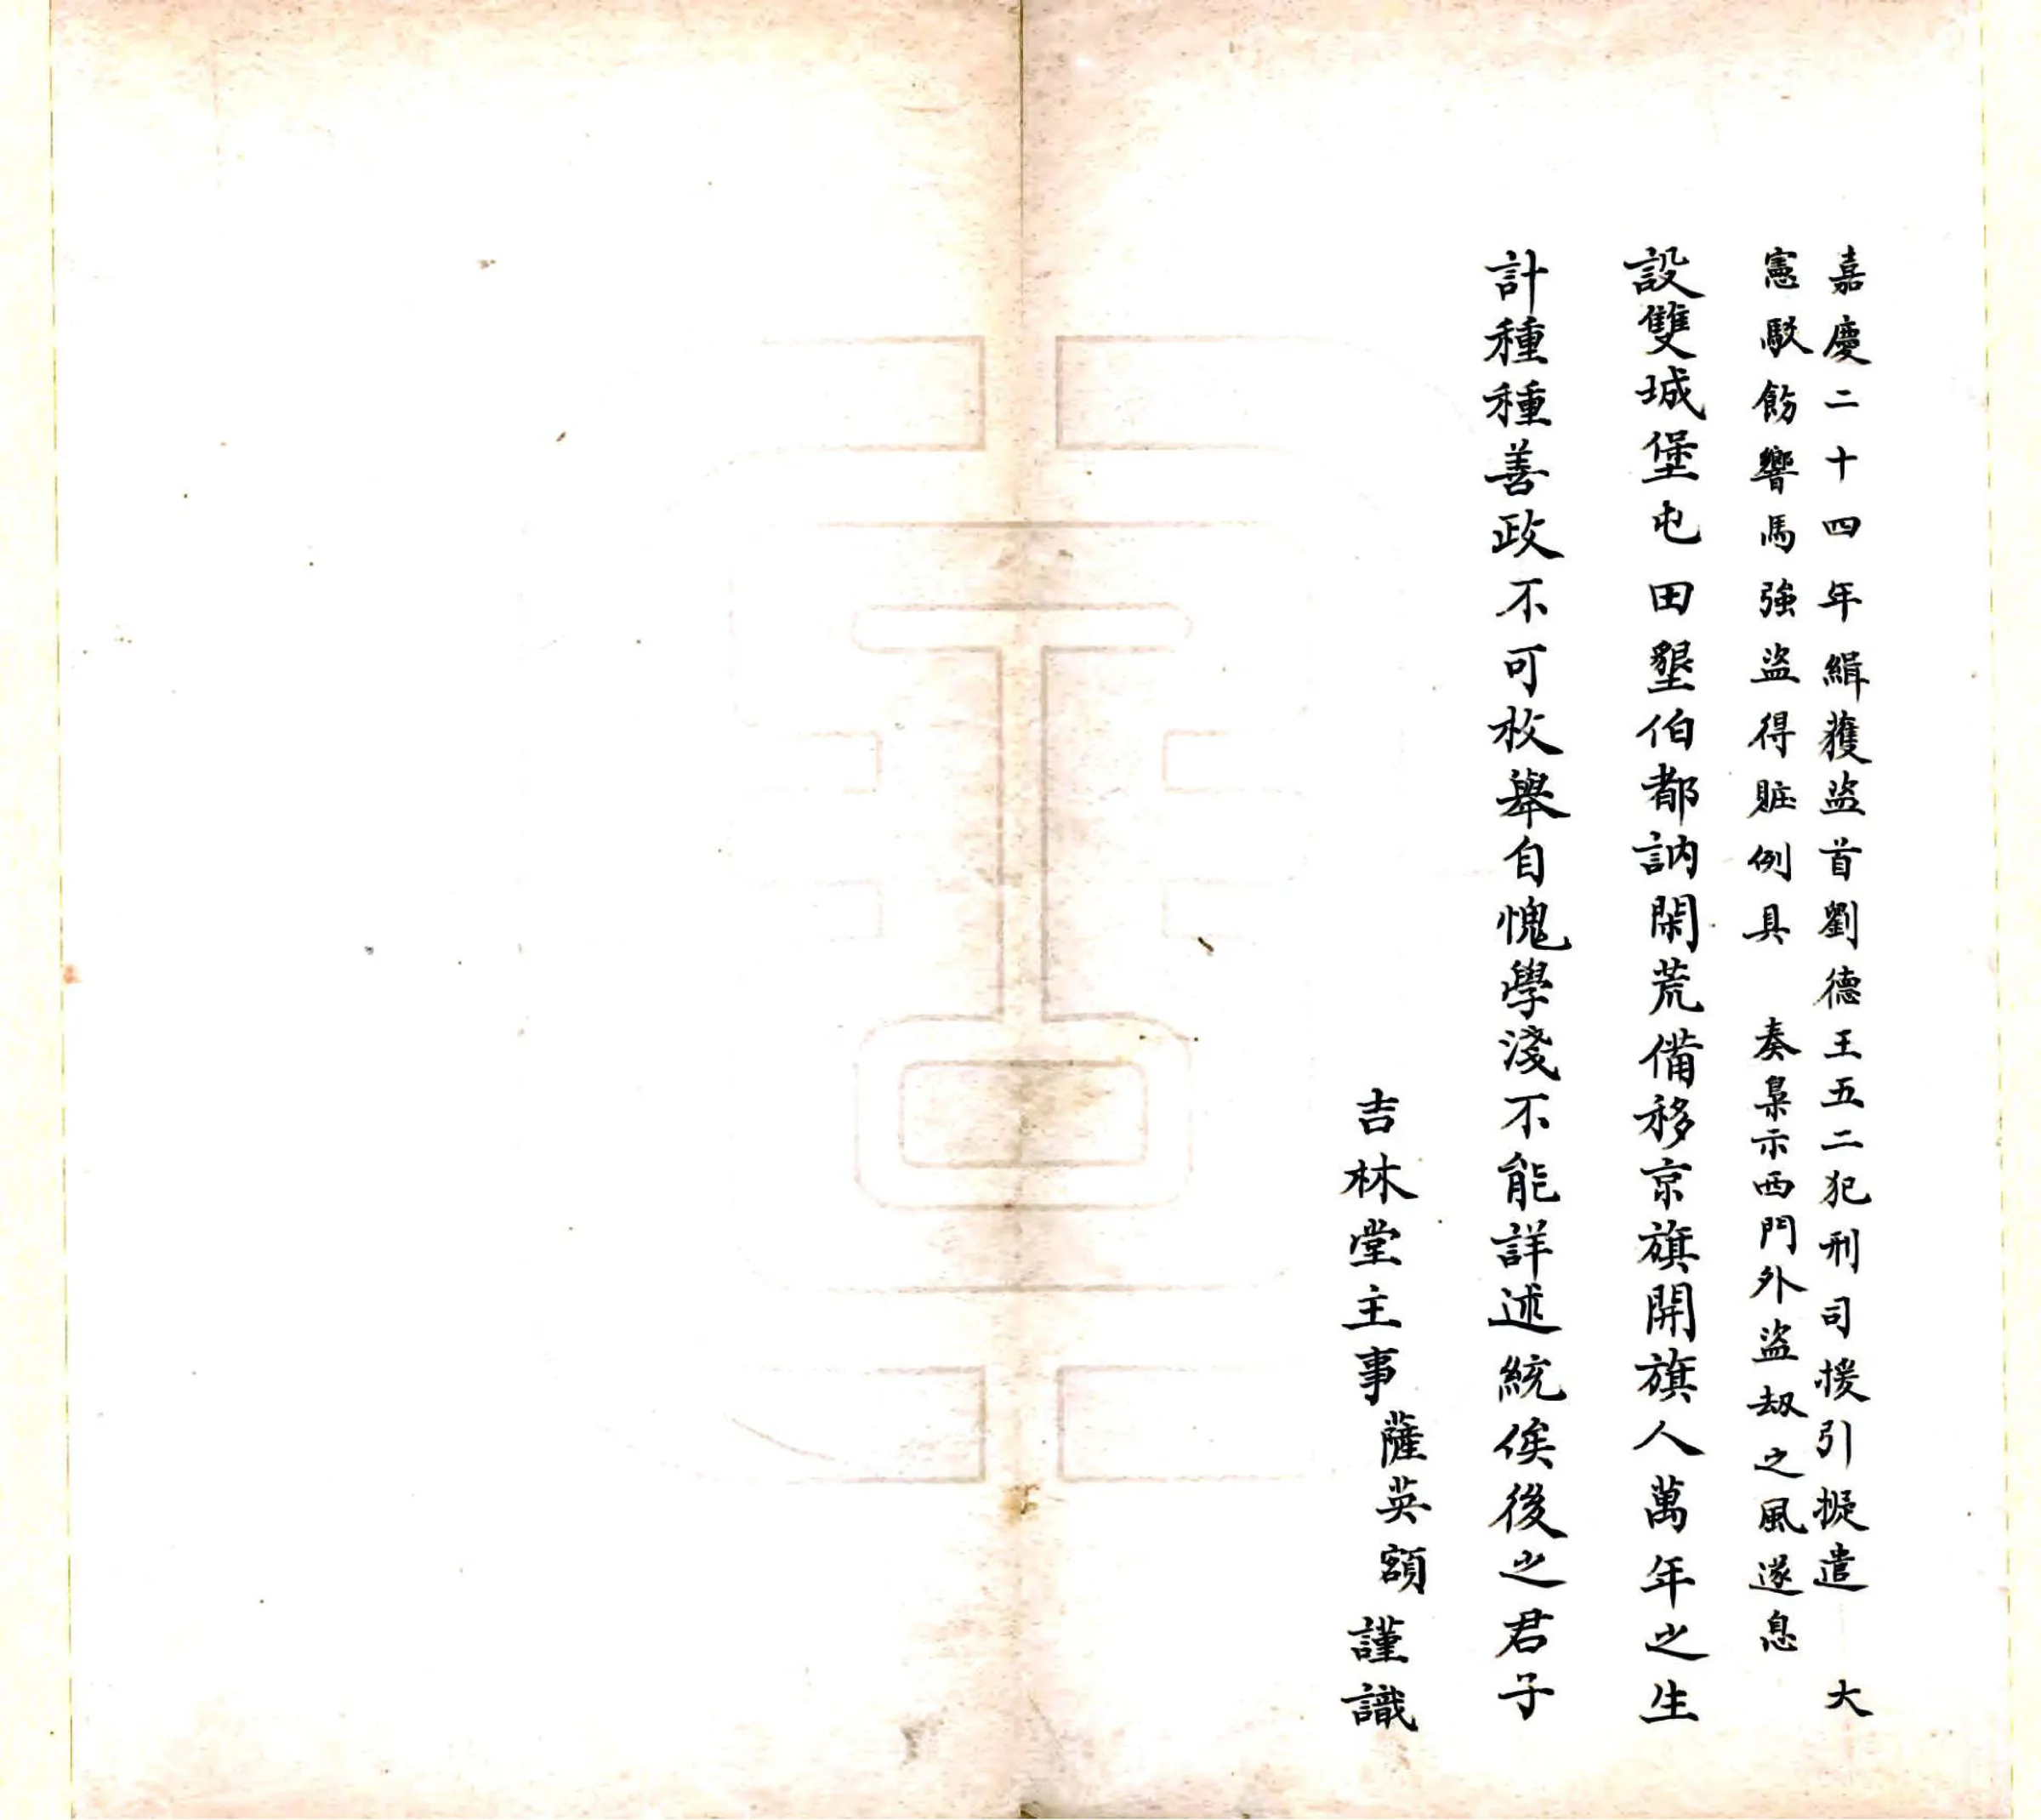 嘉慶二十四年緝獲盜首劉德王五二犯刑司援引擬遣　大
憲駁飭響馬強盜得賍例具　奏梟示西門外盜劫之風遂息
設雙城堡屯田墾伯都訥閑荒備移京旗開旗人萬年之生
計種種善政不可枚舉自愧學淺不能詳述統俟後之君子
吉林堂主事薩英額謹識